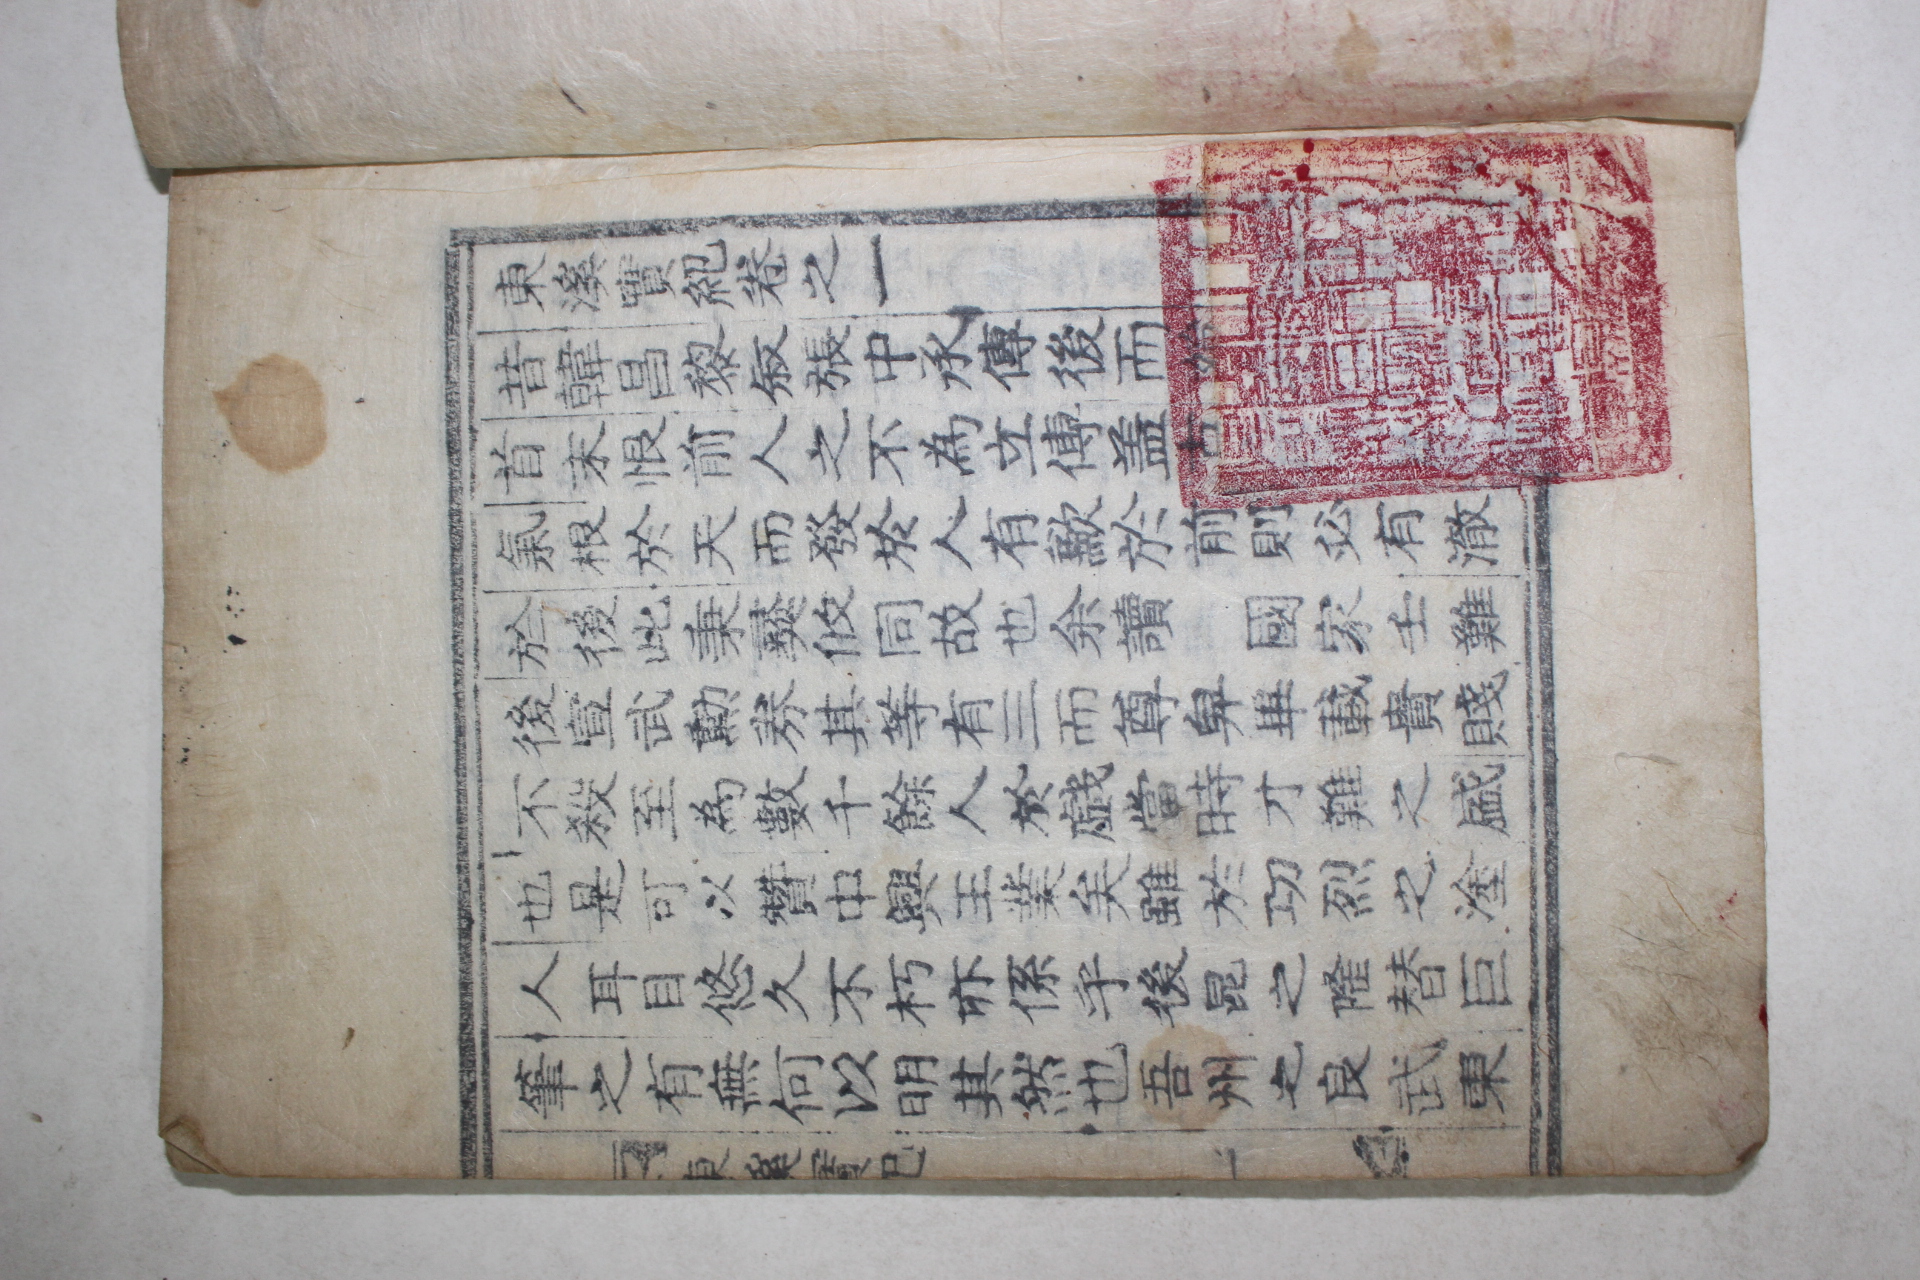 東溪實紀卷之一
昔韓昌黎敍張中丞傳後而
首末恨前人之不為立傳盖
氣根於天而發於人有歉於前則必有激
於後此秉彛攸同故也余讀　國家壬難
後宣武勳券其等有三而尊卑畢載貴賤
不殺至為數千餘人於戲當時才難之盛
也是可以贊中興王業矣雖於功烈之塗
人耳目悠久不朽亦係乎後昆之隆替巨
筆之有無何以明其然也吾州之良武東
東溪實紀